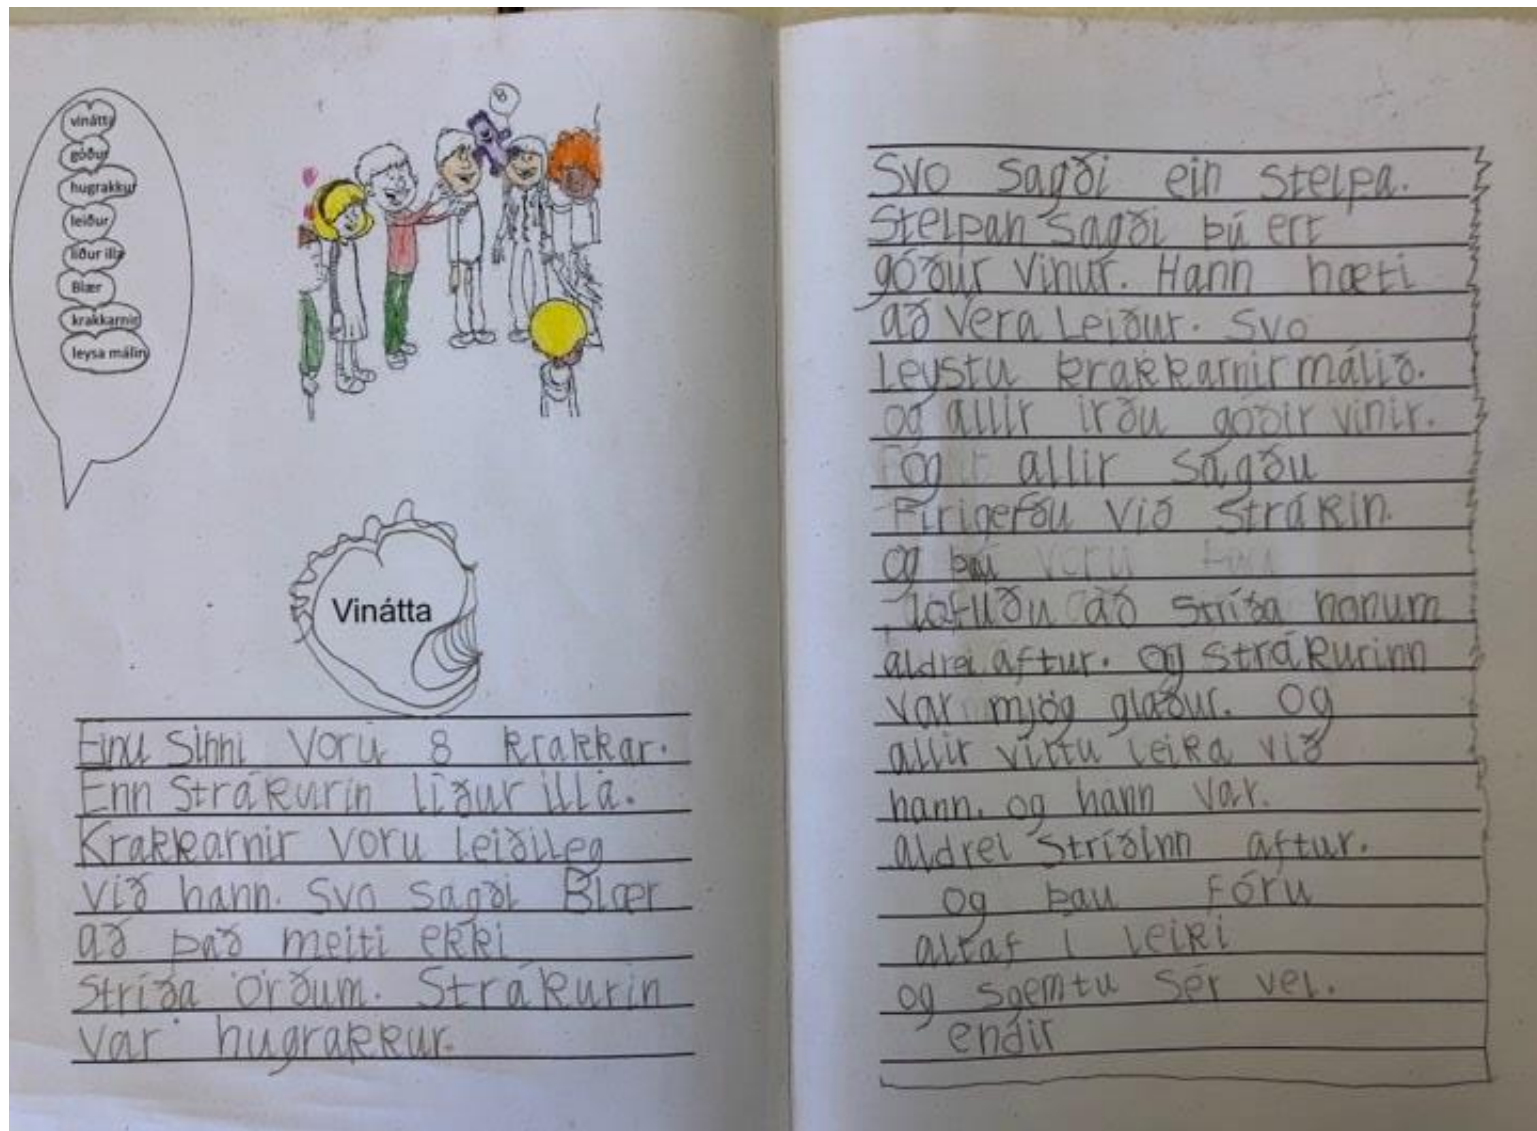 vinátta
góður
hugrakkur
leiður
líður illa
Blær
krakkarnir
leysa málin
Vinátta
Einu Sinni voru 8 krakkar.
Enn Strákurin líður illa.
Krakkarnir voru leiðileg
við hann. Svo sagði Blær
að það meiti ekki
Stríða örðum. Strákurin
var hugrakkur.
Svo sagði ein stelpa.
Stelpan sagði þú ert
góður vinur. Hann hæti
að vera Leiður. Svo
Leystu krakkarnir málið.
og allir irðu góðir vinir.
og allir sagðu
Firigefðu við strákin.
og þau
lofuðu að stríða honum
aldrei aftur. og strákurinn
var mjög glaður. Og
allir viltu leika við
hann. og hann var.
aldrei Stríðinn aftur.
og þau fóru
altaf í leiki
og sgemtu sér vel.
endir